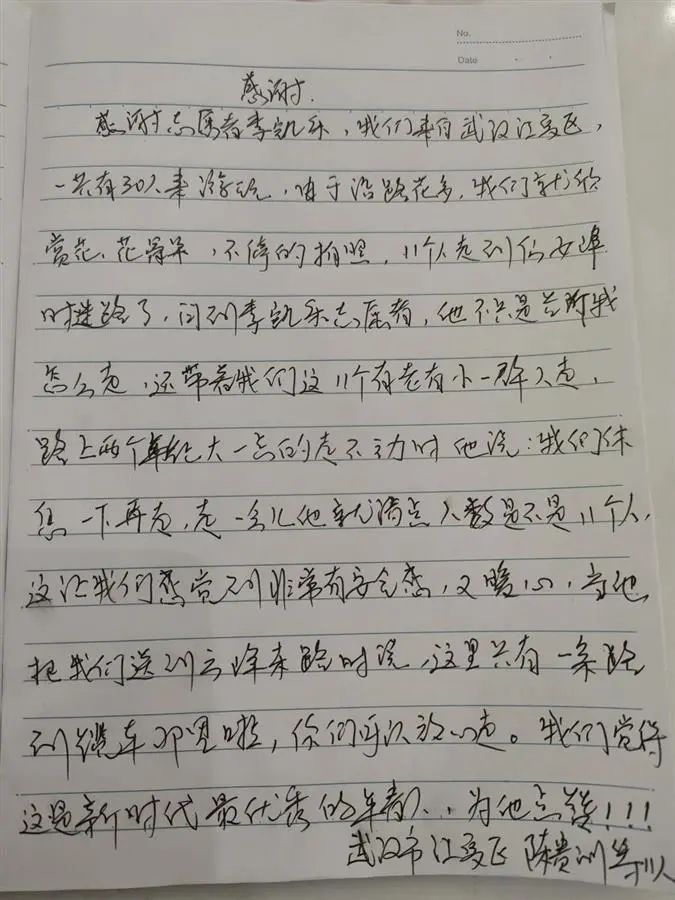 No.
Date
感谢
感谢志愿者李凯乐,我们来自武汉江夏区,
一共有30人来游玩,由于沿路花多,我们就欣
赏花、花骨朵,不停的拍照,11个人走到仙女
时迷路了,问到李凯乐志愿者,他不只是告诉我
怎么走,还带着我们这11个有老有小一群人走,
路上两个年纪大一点的走不动时他说:我们休
息一下再走,走一会儿他就清点人数是不是11个人,
这让我们感觉到非常有安全感,又暖心,当他
把我们送到云峰来路时说,这里只有一条路
到缆车那里啦,你们可以放心走。我们觉得
这是新时代最优秀的年青人..为他点赞!!!
武汉市江夏区 陈贵训等11人